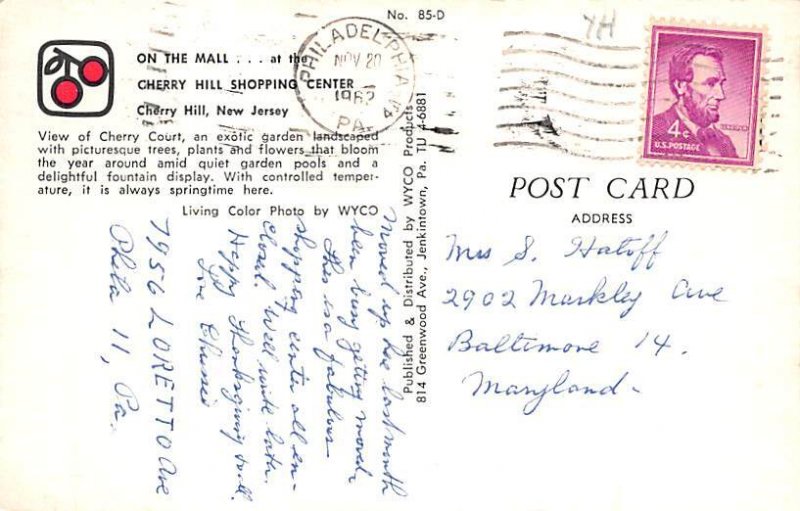 No. 85-D
ON THE MALL . . . at the
CHERRY HILL SHOPPING CENTER
Cherry Hill, New Jersey
View of Cherry Court, an exotic garden landscaped
with picturesque trees, plants and flowers that bloom
the year around amid quiet garden pools and a
delightful fountain display. With controlled temper-
ature, it is always springtime here.
Living Color Photo by WYCO
Moved up here last month
been busy getting moved.
This is a fabulous
shopping center all en-
closed. Will write later.
Happy Thanksgiving to all.
Love
7956 LORETTO Ave
Phila 11, Pa.
Published & Distributed by WYCO Products
814 Greenwood Ave., Jenkintown, Pa. TU 4-6881
PHILADELPHIA
NOV 20
1962
PA
4
YH
4¢
U.S. POSTAGE
POST CARD
ADDRESS
Mrs S. Hatoff
2902 Markley Ave
Baltimore 14.
Maryland-